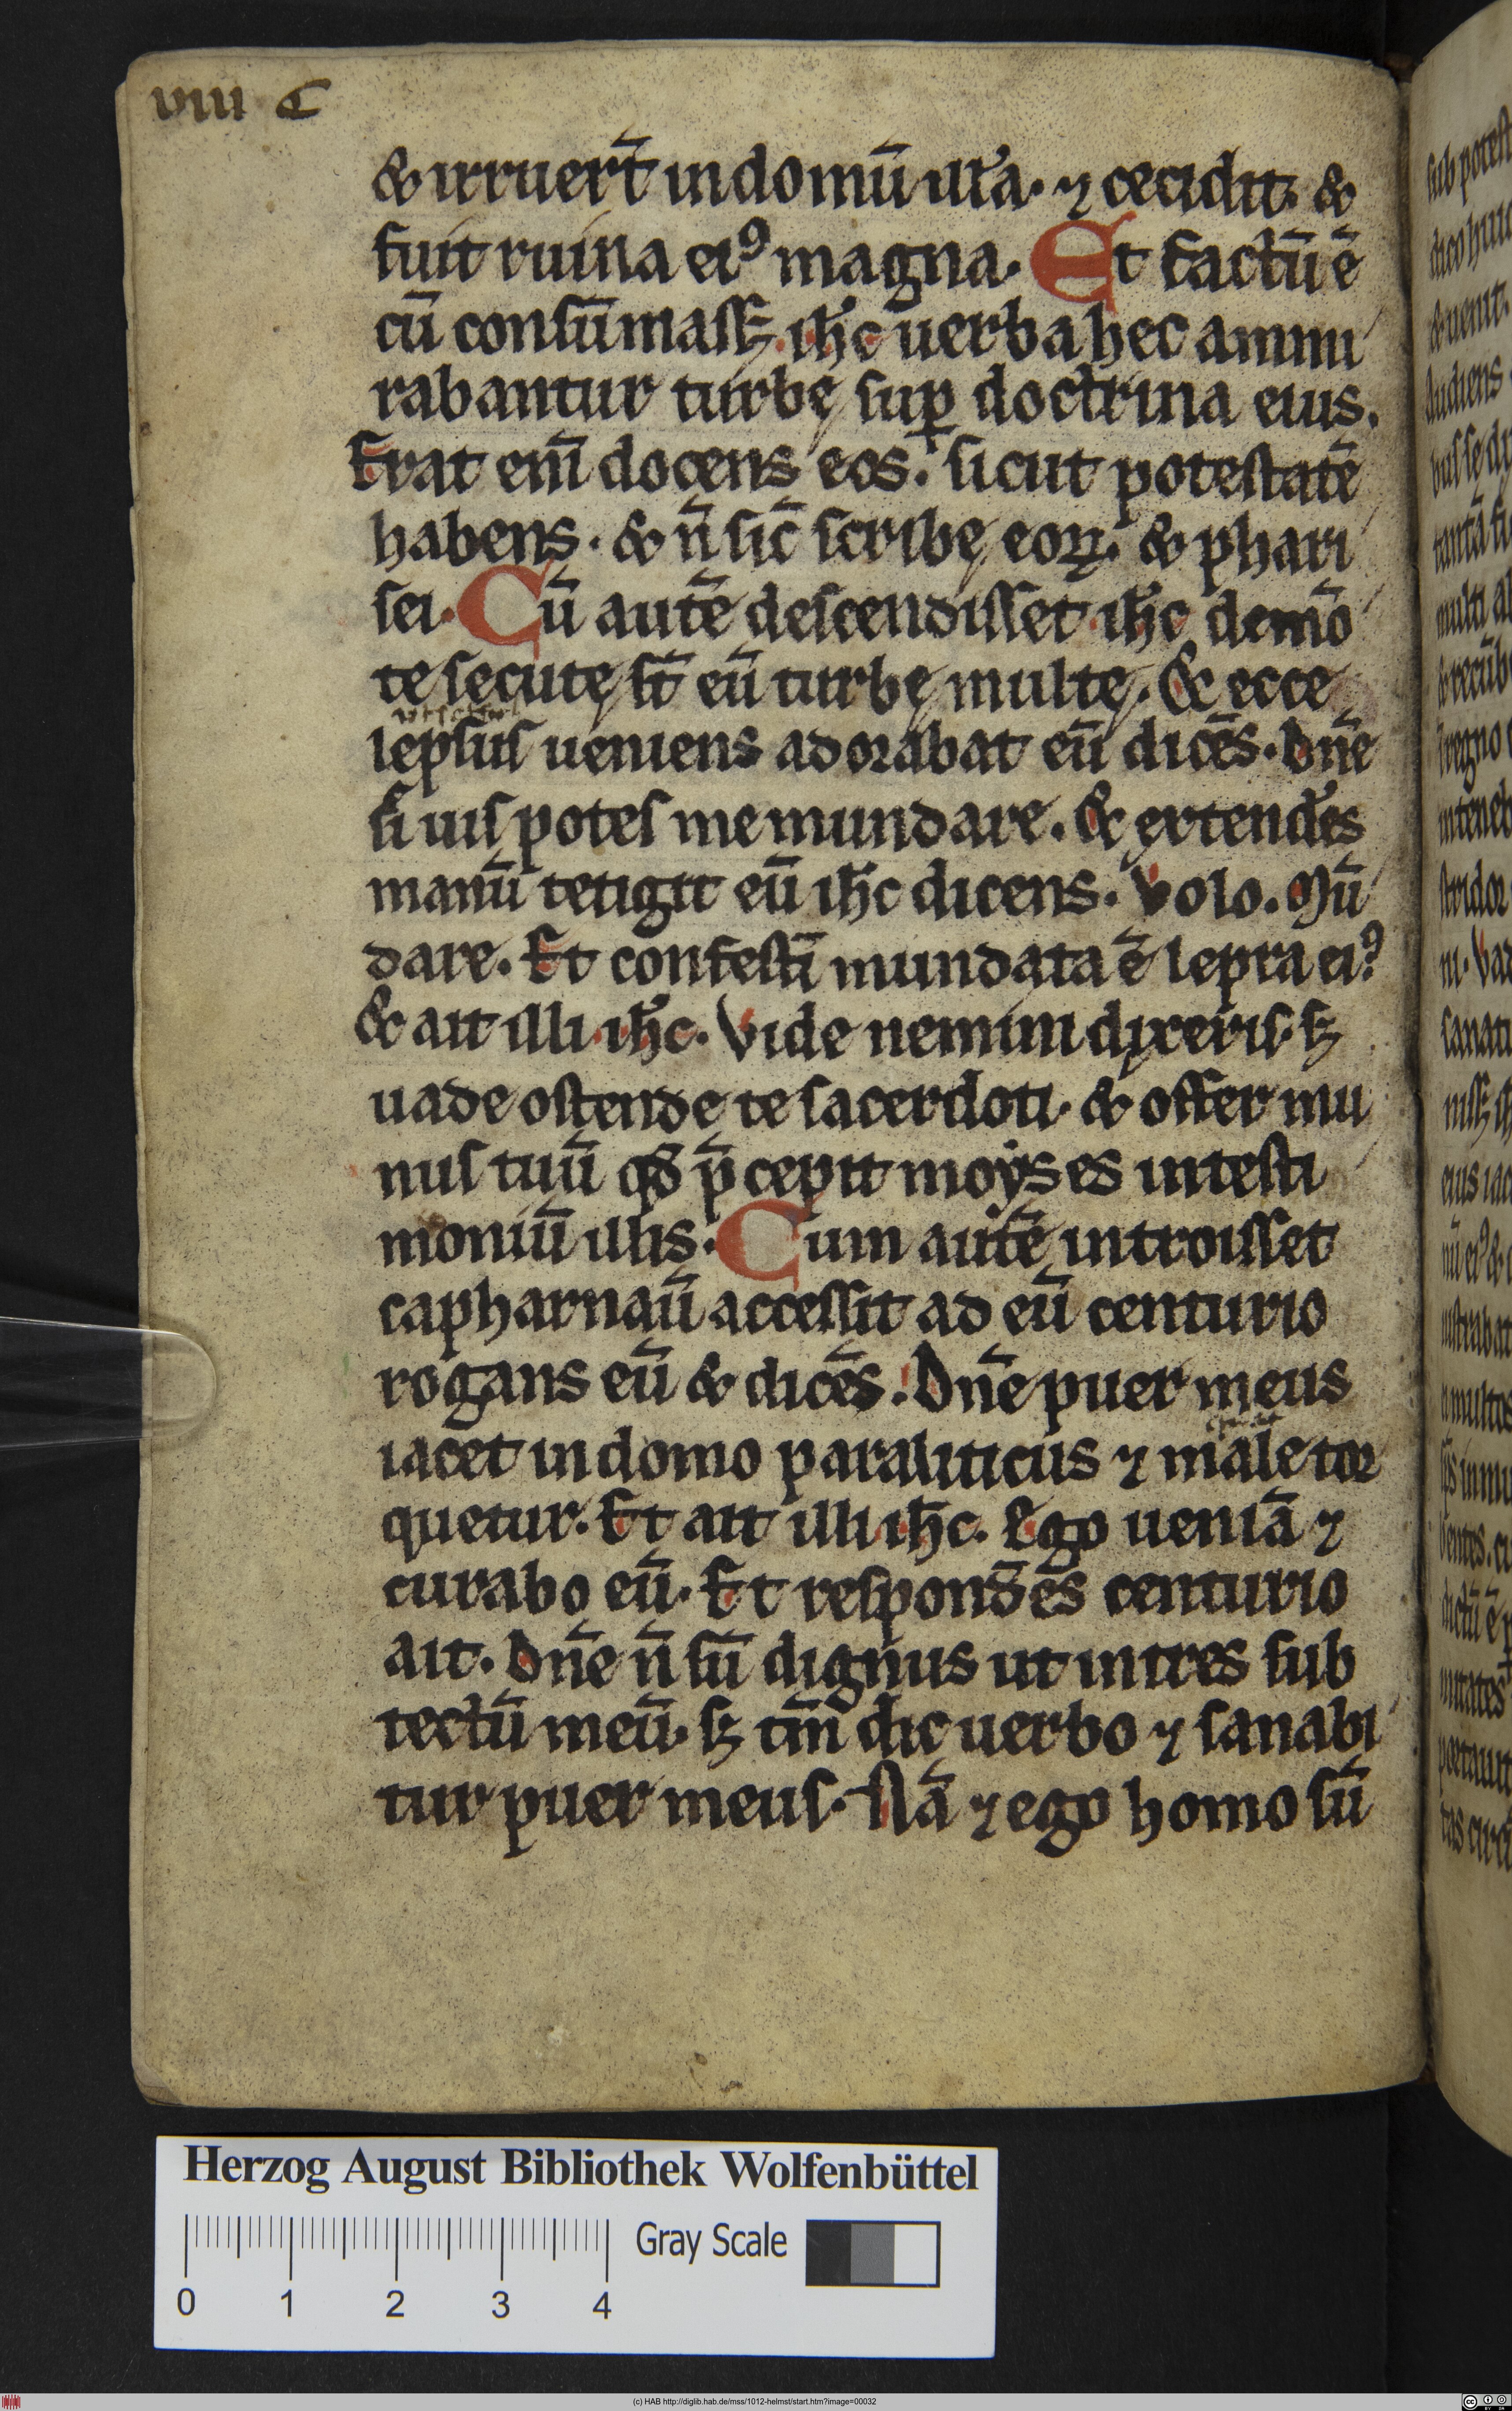 viii C
& irruer̄t in domū illā. ⁊ cecidit. &
fuit ruina eiꝰ magna. Et factū ē
cū conſūmaſſꝫ ih̄c uerba hec ammi
rabantur turbę ſuꝑ doctrina eius.
Erat eni̅ docens eos. ſicut poteſtatē
habens. & n̄ ſic̄ ſcribę eoꝝ. & phari
ſei. Cū autē deſcendiſſet ih̄c de mo̅
te ſecutę ſt̄ eū turbę multę. & ecce
lepſuſ ueniens adorabat eū dicēs. Dn̄e
ſi uiſ poteſ me mundare. & extend̓es
manū tetigit eū ih̄c dicens. Volo. Mū
dare. Et confeſti̅ mundata ē lepra eiꝰ
& ait illi ih̄c. Vide nemini dixeriſ. ſꝫ
uade oſtende te ſacerdoti. & offer mu
nuſ tuū qd̄ p̄cepit moyses in teſti
moniū illis. Cum autē introiſſet
capharnaū acceſſit ad eū centurio
rogans eū & dicēs. Dn̄e puer meus
iacet in domo paraliticus ⁊ male tor
quetur. Et ait illi ih̄c. Ego ueniā ⁊
curabo eū. Et reſpond̄ēs centurio
ait. Dn̄e n̄ ſū dignus ut intres ſub
tectū meū. ſꝫ tm̄ dic uerbo ⁊ ſanabi
tur puer meuſ. Nā ⁊ ego homo ſū
Herzog August Bibliothek Wolfenbüttel
Gray Scale
0 1 2 3 4
(c) HAB http://diglib.hab.de/mss/1012-helmst/start.htm?image=00032